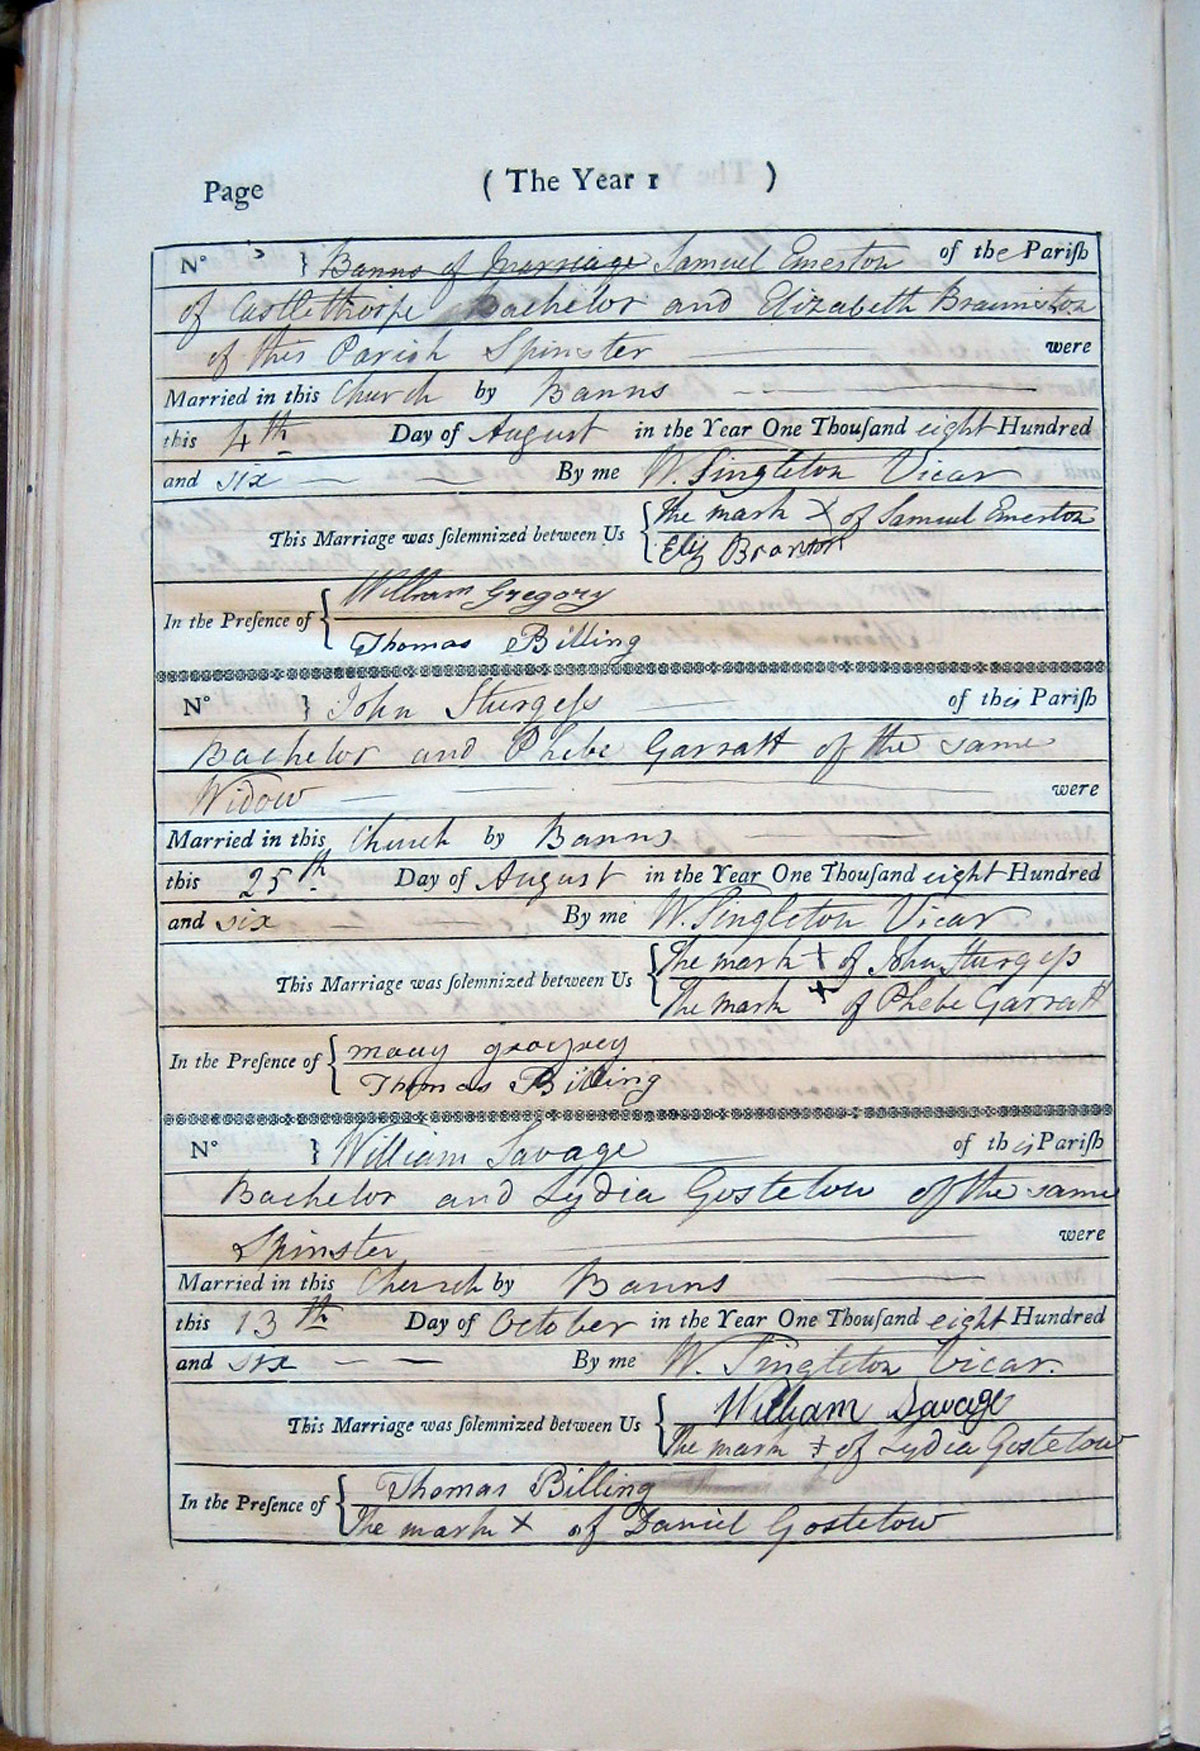 Page ( The Year 1 )
N° } Banns of Marriage Samuel Emerton of the Pariſh
of Castlethorpe Bachelor and Elizabeth Braunston
of this Parish Spinster were
Married in this Church by Banns
this 4th Day of August in the Year One Thouſand eight Hundred
and six By me W. Singleton Vicar
This Marriage was ſolemnized between Us { The mark X of Samuel Emerton
Eliz Branson
In the Preſence of { William Gregory
Thomas Billing
N° } John Sturgeſs of this Pariſh
Bachelor and Phebe Garratt of the same
Widow were
Married in this Church by Banns
this 25th Day of August in the Year One Thouſand eight Hundred
and six By me W. Singleton Vicar
This Marriage was ſolemnized between Us { The mark + of John Sturgeſs
The mark + of Phebe Garratt
In the Preſence of {
Thomas Billing
N° } William Savage of this Pariſh
Bachelor and Lydia Gostelow of the same
Spinster were
Married in this Church by Banns
this 13th Day of October in the Year One Thouſand eight Hundred
and six By me W. Singleton Vicar.
This Marriage was ſolemnized between Us { William Savage
The mark + of Lydia Gostelow
In the Preſence of { Thomas Billing
The mark X of Daniel Gostelow